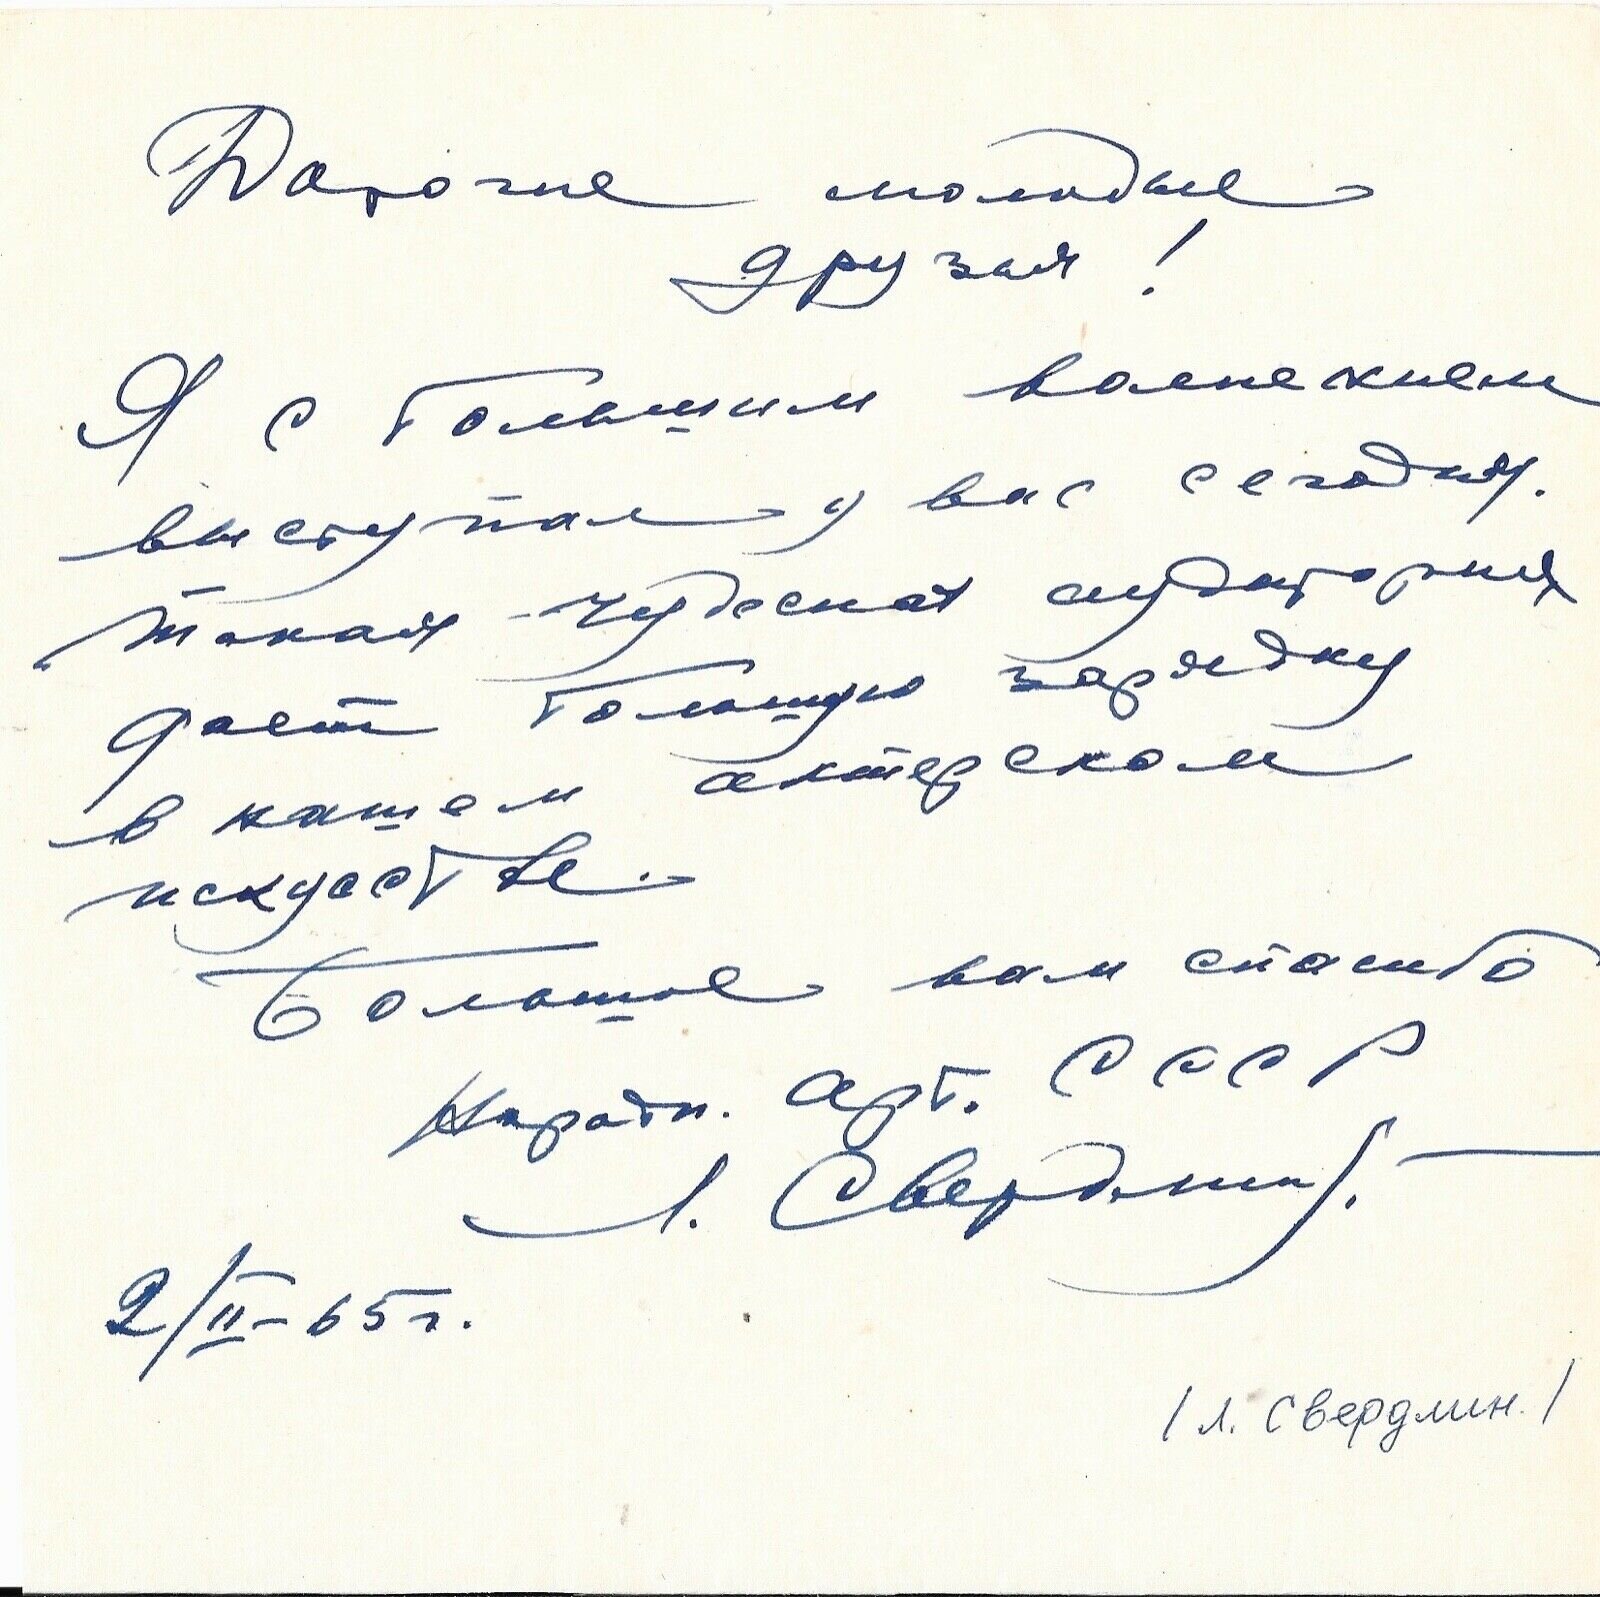 Дорогие молодые
друзья!
Я с большим волнением
выступал у вас сегодня.
Такая чудесная аудитория
дает большую зарядку
в нашем актерском
искусстве.
Большое вам спасибо
Народн. арт. СССР
Л. Свердлин.
2/II-65г.
/Л. Свердлин./